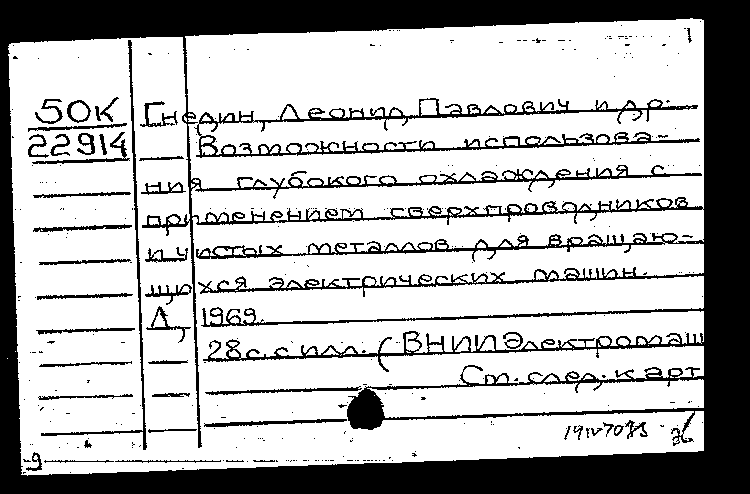 1
50К Гнедин, Леонид Павлович и др.
22914 Возможности использова-
ния глубокого охлаждения с
применением сверхпроводников
и чистых металлов для вращаю-
щихся электрических машин.
Л, 1969.
28с. с илл. (ВНИИЭлектромаш
Ст. след. карт
9